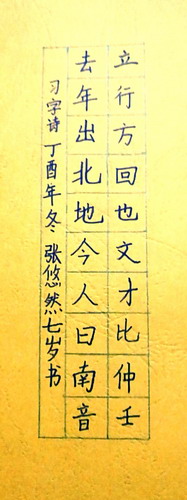 立行方回也文才比仲壬
去年出北地今人日南音
习字诗 丁酉年冬 张悠然七岁书